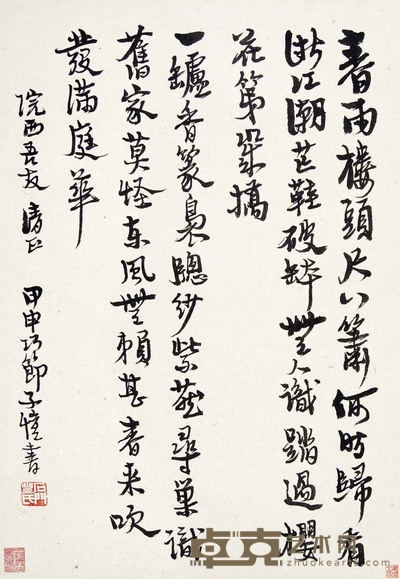 春雨樓頭尺八簫何時歸看
浙江潮芒鞋破缽無人識踏過櫻
花第幾橋
一爐香篆裊窗紗紫燕尋巢識
舊家莫怪東風無賴甚春來吹
發滿庭華
院西吾友 清正
甲申巧節子愷書
卓克艺术网
zhuokearts.com